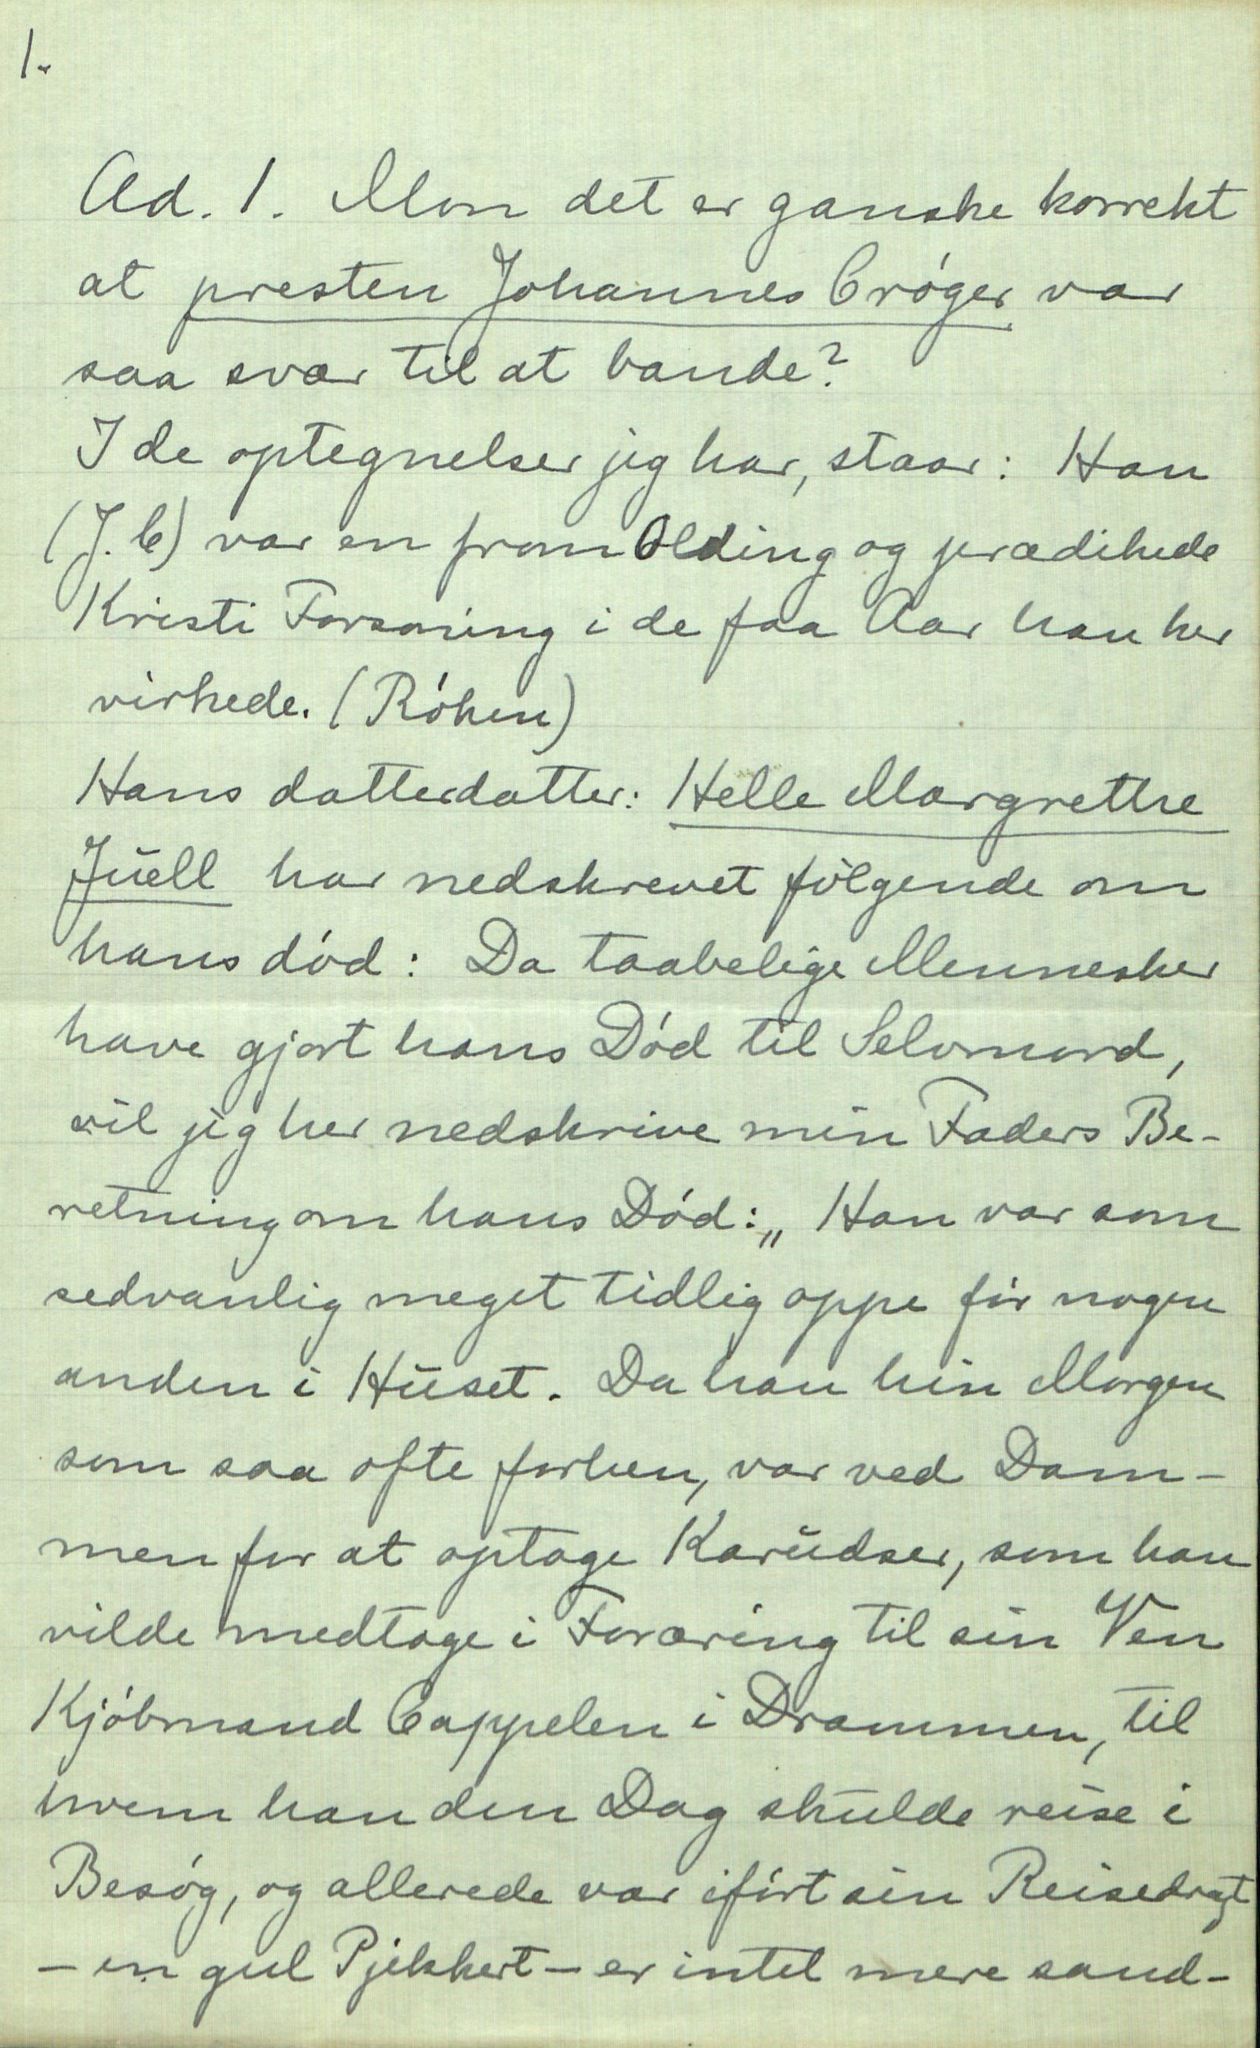 1.
Ad. 1. Mon det er ganske korrekt
at presten Johannes Crøger var
saa svær til at bande?
I de optegnelser jeg har, staar: Han
(J. C) var en from Olding og prædikede
Kristi Forsoning i de faa Aar han her
virkede. (Røken)
Hans datterdatter: Helle Margrethe
Juell har nedskrevet følgende om
hans død: Da taabelige Mennesker
have gjort hans Død til Selvmord,
vil jeg her nedskrive min Faders Be-
retning om hans Død: „ Han var som
sedvanlig meget tidlig oppe før nogen
anden i Huset. Da han hin Morgen
som saa ofte forhen, var ved Dam-
men for at optage Karudser, som han
vilde medtage i Foræring til sin Ven
Kjøbmand Cappelen i Drammen, til
hvem han den Dag skulde reise i
Besøg, og allerede var iført sin Reisedragt
– en gul Pjekkert – er intet mere sand-